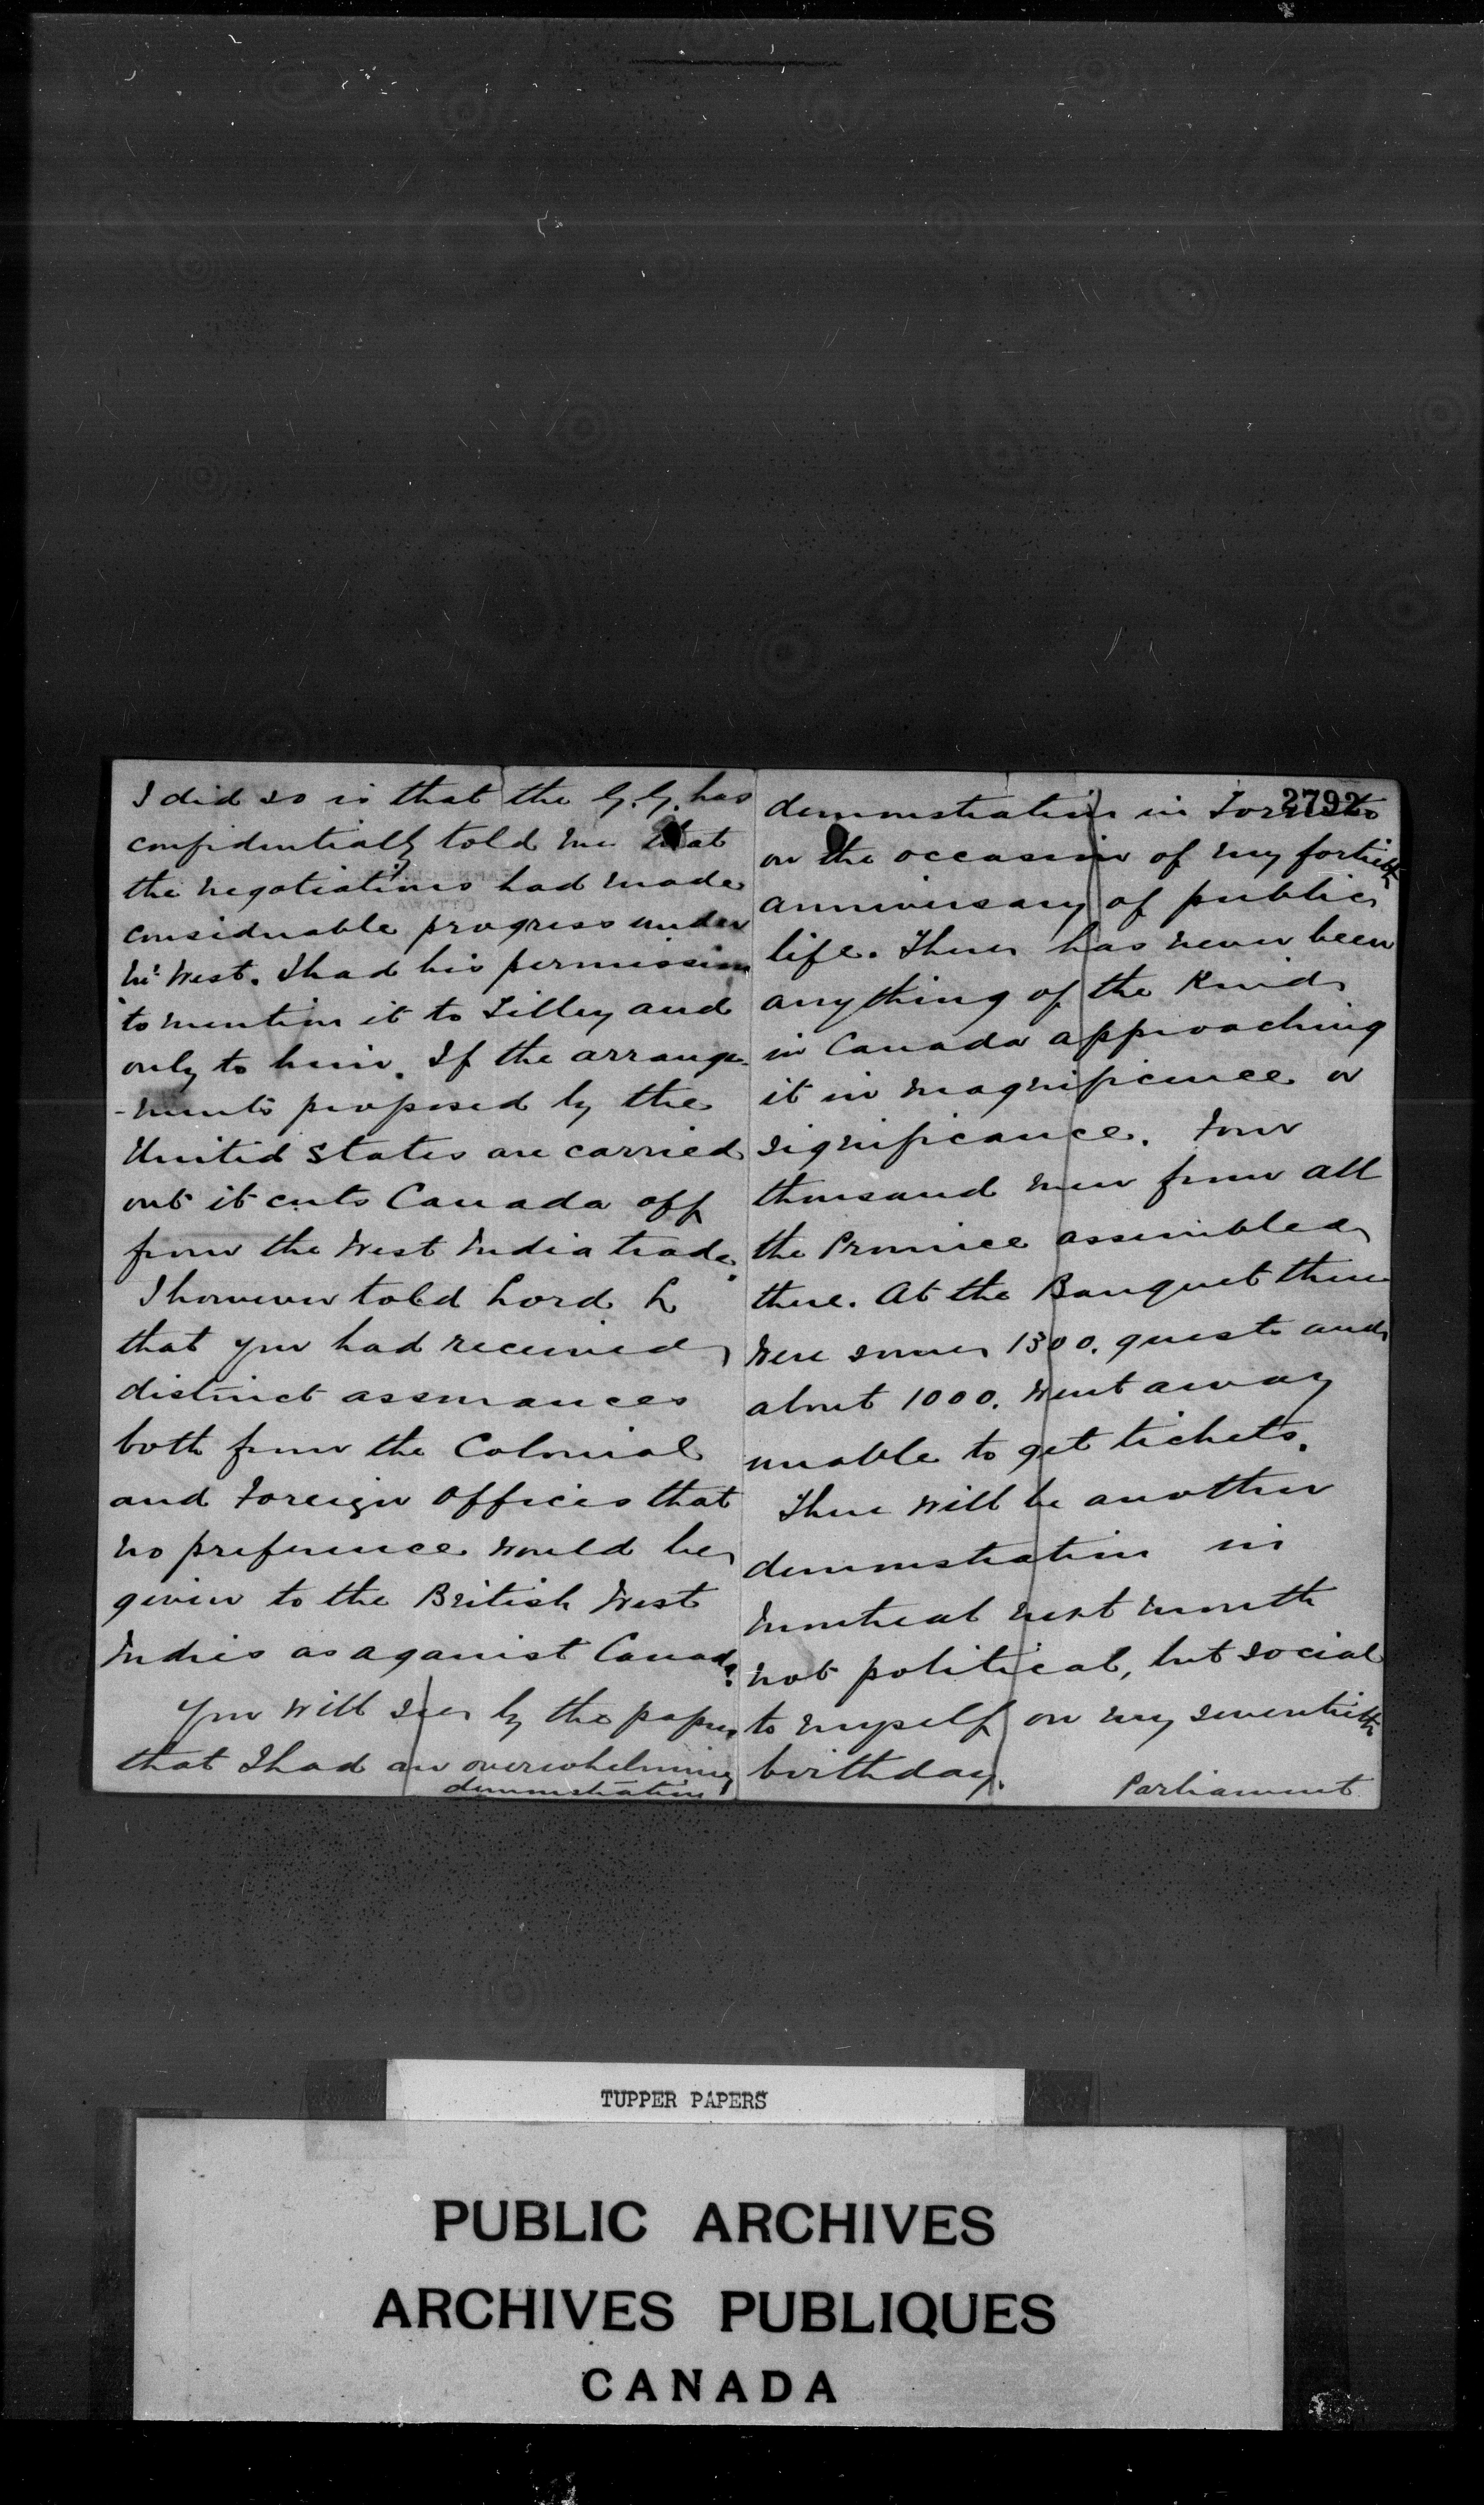 I did so is that the G.G. has
confidentially told me that
the negotiations had made
considerable progress under
Mr West. I had his permission
to mention it to Tilley and
only to him. If the arrange-
-ments proposed by the
United States are carried
out it cuts Canada off
from the West India trade.
I however told Lord L
that you had received
distinct assurances
both from the Colonial
and Foreign Offices that
no preference would be
given to the British West
Indies as against Canada.
You will see by the papers
that I had an overwhelming
demonstration
2792
demonstration in Toronto
on the occasion of my fortieth
anniversary of public
life. There has never been
anything of the kind
in Canada approaching
it in magnificence or
significance. Four
thousand men from all
the Province assembled
there. At the Banquet there
were some 1300. guests and
about 1000. went away
unable to get tickets.
There will be another
demonstration in
Montreal next month
not political, but social
to myself on my seventieth
birthday.
Parliament
TUPPER PAPERS
PUBLIC ARCHIVES
ARCHIVES PUBLIQUES
CANADA